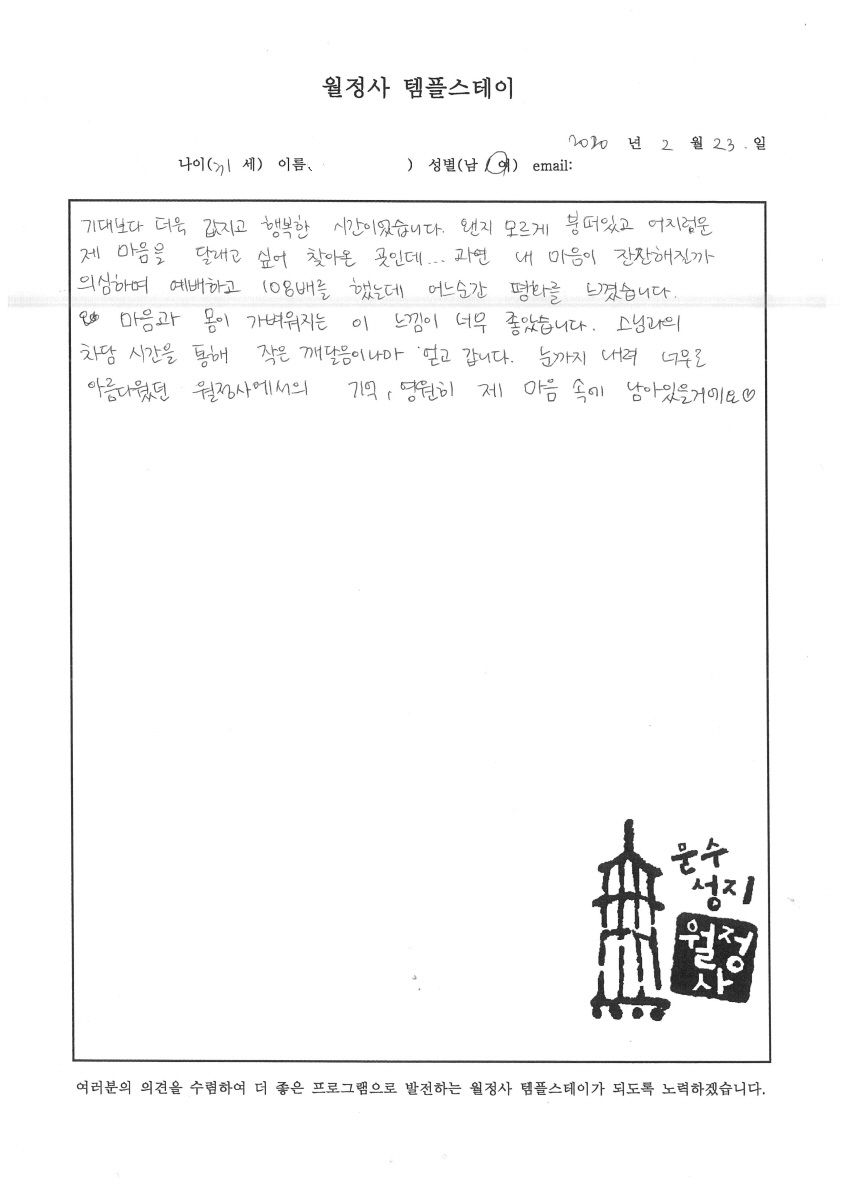 월정사 템플스테이
2020 년 2 월 23. 일
나이( 세) 이름、 ) 성별(남 / 여) email:
기대보다 더욱 값지고 행복한 시간이었습니다. 왠지 모르게 붕떠있고 어지럽운
제 마음을 달래고 싶어 찾아온 곳인데... 과연 내 마음이 잔잔해질까
의심하며 예배하고 108배를 했는데 어느순간 평화를 느꼈습니다.
마음과 몸이 가벼워지는 이 느낌이 너무 좋았습니다. 스님과의
차담 시간을 통해 작은 깨달음이나마 얻고 갑니다. 눈까지 내려 너무로
아름다웠던 월정사에서의 기억, 영원히 제 마음 속에 남아있을거예요♡
문수
성지
월정
사
여러분의 의견을 수렴하여 더 좋은 프로그램으로 발전하는 월정사 템플스테이가 되도록 노력하겠습니다.